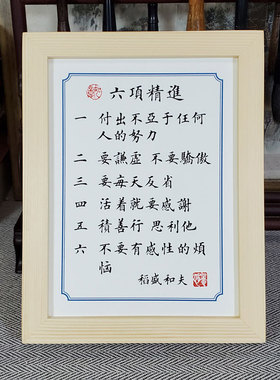 六項精進
一 付出不亞于任何
人的努力
二 要謙虛 不要驕傲
三 要每天反省
四 活着就要感謝
五 積善行 思利他
六 不要有感性的煩
惱
稻盛和夫